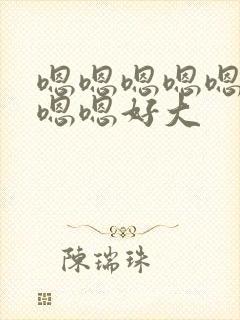 嗯嗯嗯嗯嗯
嗯嗯好大
陳瑞珠